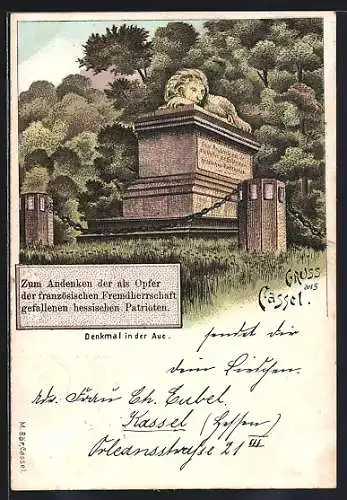 Zum Andenken der als Opfer
der französischen Fremdherrschaft
gefallenen hessischen Patrioten.
Denkmal in der Aue.
GRUSS
aus
Cassel.
sendet dir
dein Lieschen.
Adr. Frau Ch. Tubel.
Kassel (Hessen)
Orleansstraße 21 III
M. Bär, Cassel.